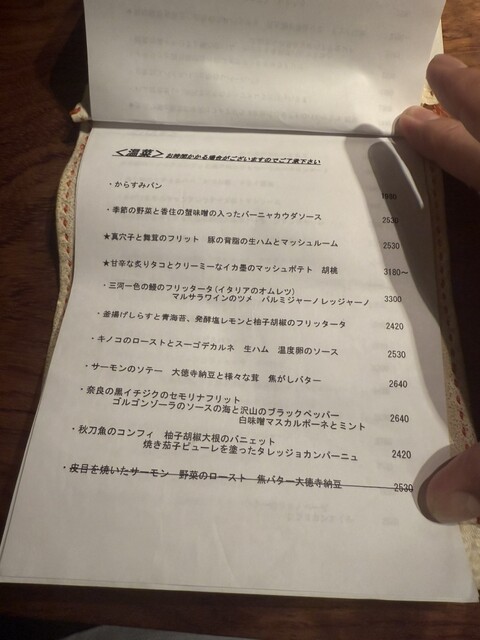 ＜温菜＞ お時間かかる場合がございますのでご了承下さい
・からすみパン 1980
・季節の野菜と香住の蟹味噌の入ったバーニャカウダソース 2530
★真穴子と舞茸のフリット 豚の背脂の生ハムとマッシュルーム 2530
★甘辛な炙りタコとクリーミーなイカ墨のマッシュポテト 胡桃 3180～
・三河一色の鰻のフリッタータ(イタリアのオムレツ)
マルサラワインのツメ パルミジャーノレッジャーノ 3300
・釜揚げしらすと青海苔、発酵塩レモンと柚子胡椒のフリッタータ 2420
・キノコのローストとスーゴデカルネ 生ハム 温度卵のソース 2530
・サーモンのソテー 大徳寺納豆と様々な茸 焦がしバター 2640
・奈良の黒イチジクのセモリナフリット
ゴルゴンゾーラのソースの海と沢山のブラックペッパー
白味噌マスカルポーネとミント 2640
・秋刀魚のコンフィ 柚子胡椒大根のバニェット
焼き茄子ピューレを塗ったタレッジョカンパーニュ 2420
・皮目を焼いたサーモン 野菜のロースト 焦バター大徳寺納豆 2530